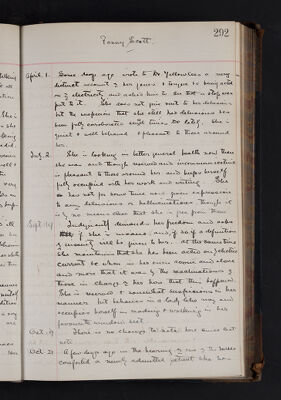 292
Fanny Scott.
April 1. Some days ago wrote to Dr Yellowlees a very
distinct account of her jaws & tongue being acted
on by electricity and asked him to see that a stop was
put to it. She does not give vent to her delusions
but the suspicion that she still had delusions has
been fully corroborated since. She is
quiet & well behaved & pleasant to those around
her.
July 2. She is looking in better general health now than
she was and though reserved and
is pleasant to those around her and keeps herself
fully occupied with her work and writing. She
has not for some time now given expression
to any delusions or hallucinations though it
is by no means clear that she is free from them.
Sept 14 Indignantly demands her freedom and asks
if she is insane and if so if a definition
of insanity will be given to her. At the same time
she maintains that she has been acted on by electric
current when in her room alone and
and more that it was by the machinations of
those in charge of her here that this happened.
She is reserved & somewhat suspicious in her
manner but behaves in a lady like way and
occupies herself in reading & walking in her
favourite window seat.
Oct. 19 There is no change to note here since last
note.
Oct 21 A few days ago in the hearing of one of the nurses
comforted a newly admitted patient she